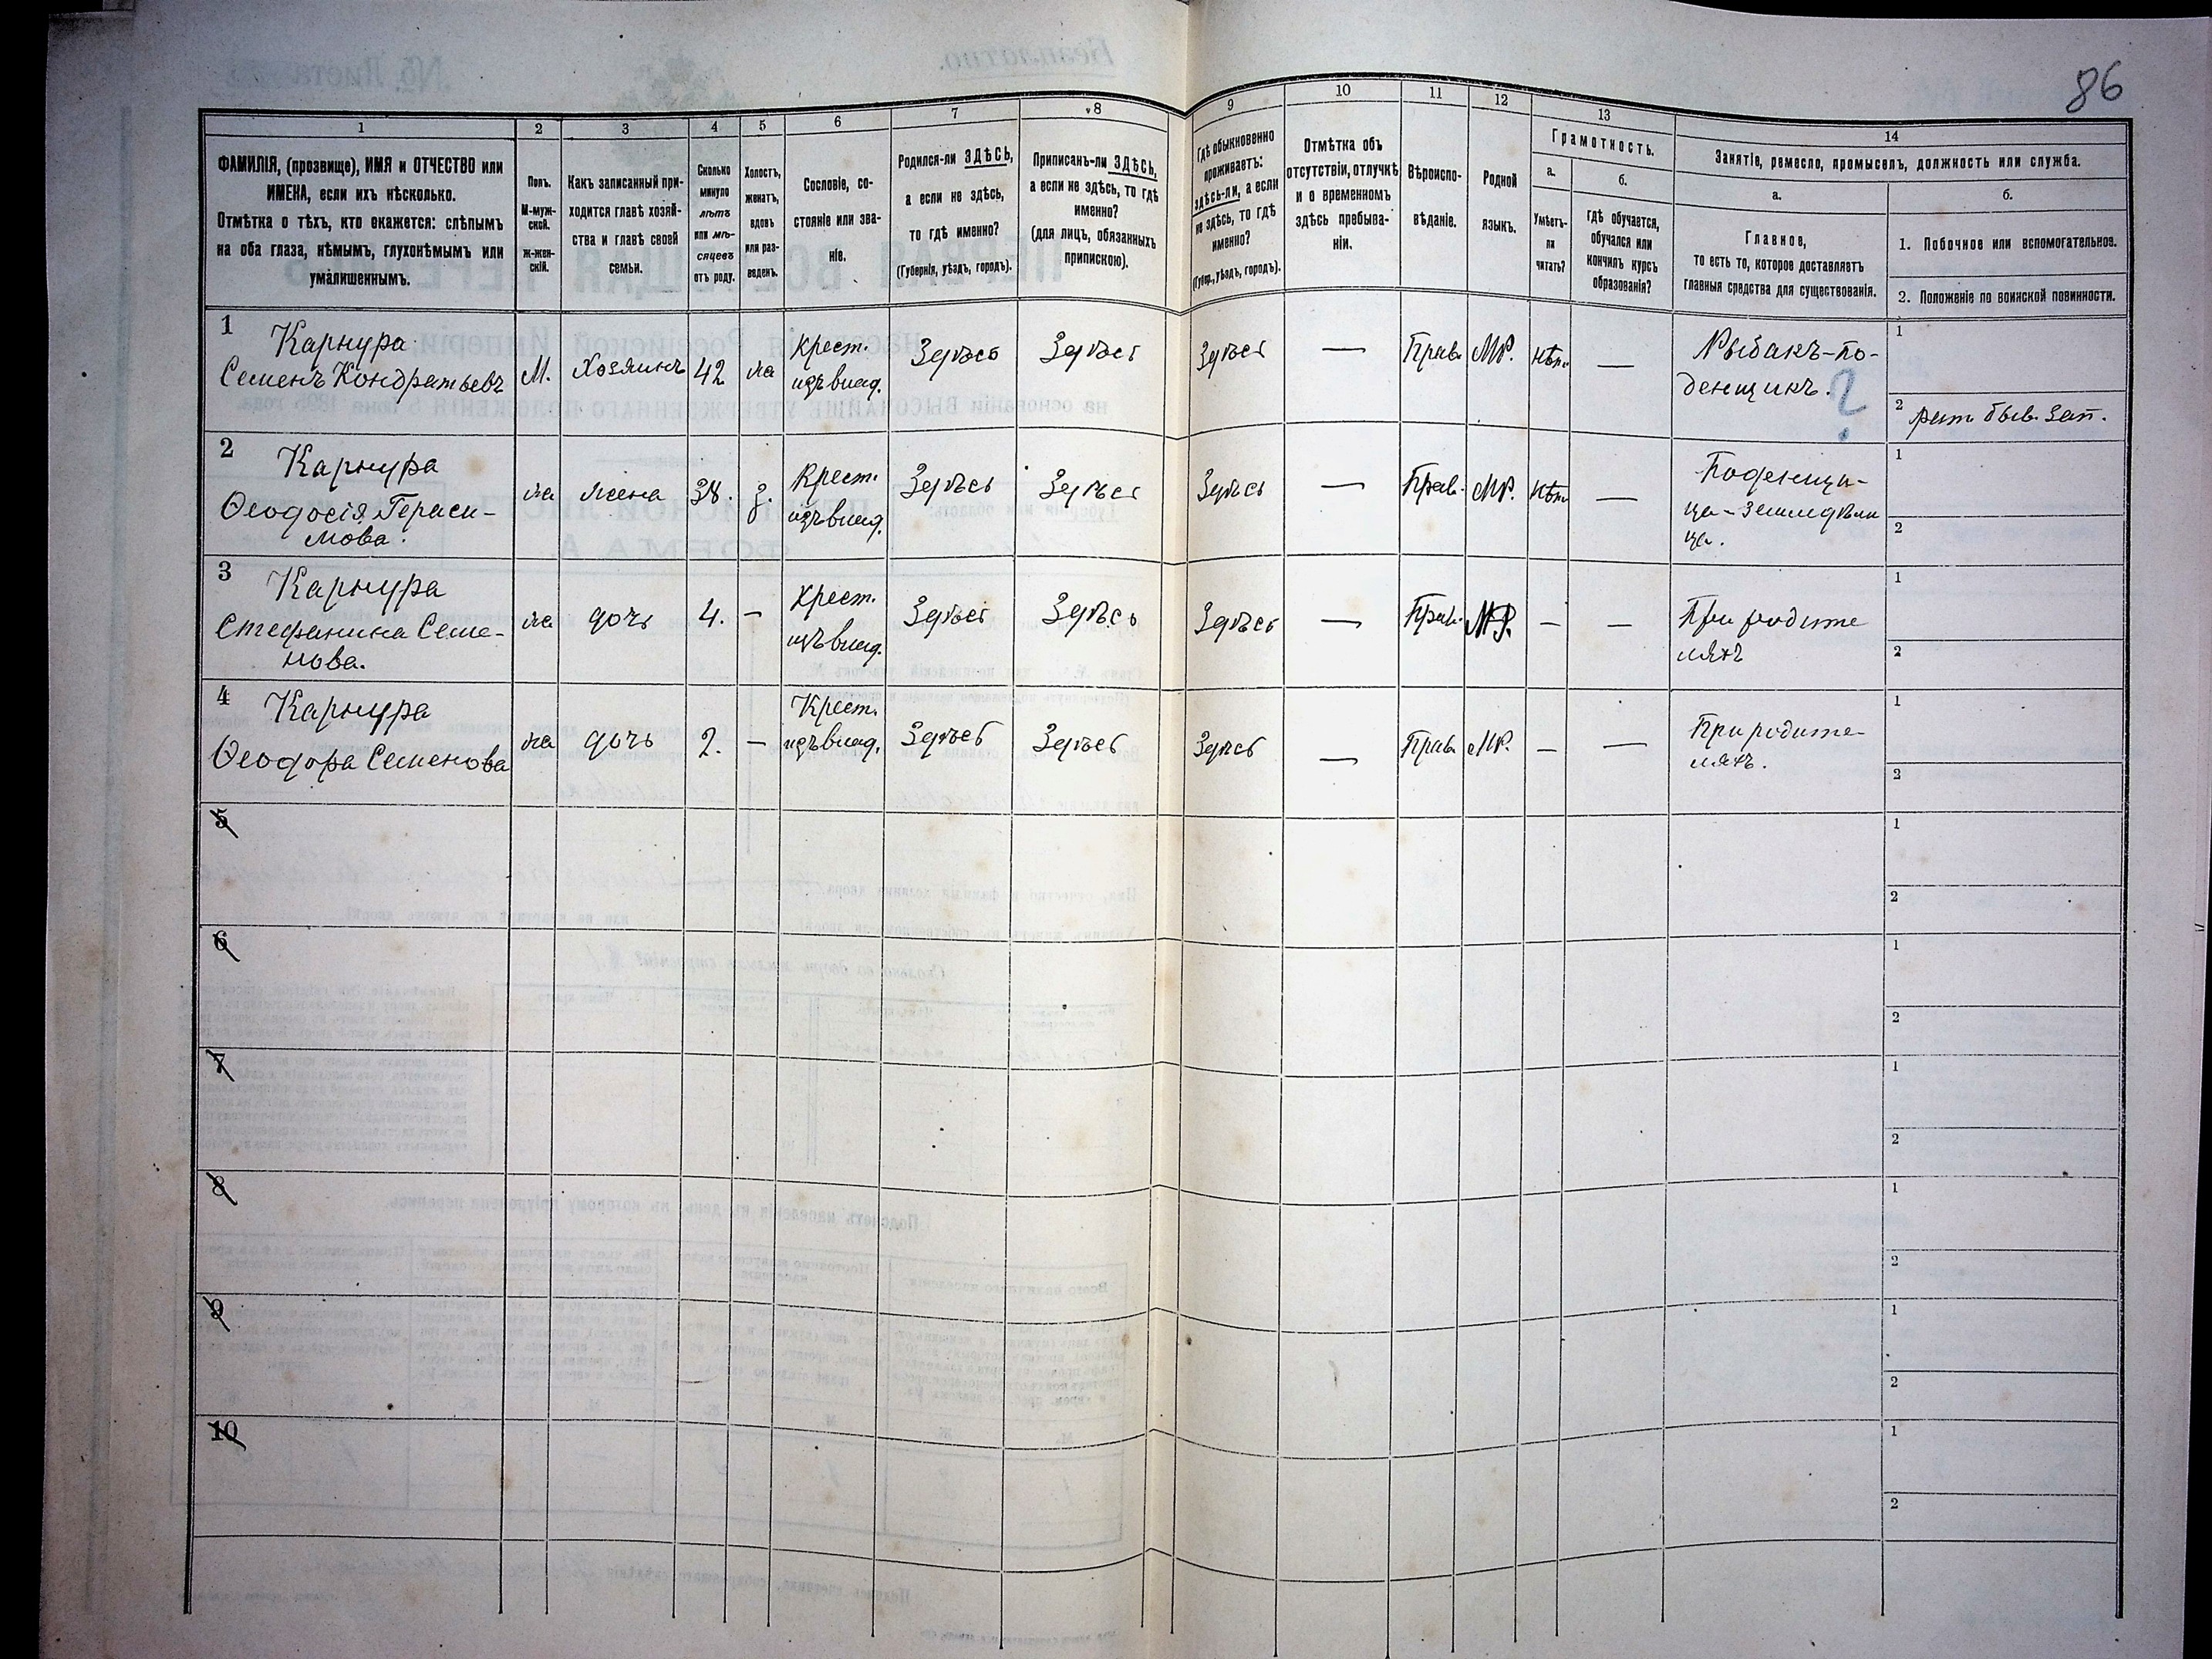 86
1
2
3
4
5
6
7
8
9
10
11
12
13
14
ФАМИЛІЯ, (прозвище), ИМЯ и ОТЧЕСТВО или
ИМЕНА, если ихъ нѣсколько.
Отмѣтка о тѣхъ, кто окажется: слѣпымъ
на оба глаза, нѣмымъ, глухонѣмымъ или
умалишеннымъ.
Полъ.
М-муж-
ской.
Ж-жен-
скій.
Какъ записанный при-
ходится главѣ хозяй-
ства и главѣ своей
семьи.
Сколько
минуло
лѣтъ
или мѣ-
сяцевъ
отъ роду.
Холостъ,
женатъ,
вдовъ
или раз-
веденъ.
Сословіе, со-
стояніе или зва-
ніе.
Родился-ли ЗДѢСЬ,
а если не здѣсь,
то гдѣ именно?
(Губернія, уѣздъ, городъ).
Приписанъ-ли ЗДѢСЬ,
а если не здѣсь, то гдѣ
именно?
(для лицъ, обязанныхъ
припискою).
Гдѣ обыкновенно
проживаетъ:
здѣсь-ли, а если
не здѣсь, то гдѣ
именно?
(Губер., уѣздъ, городъ).
Отмѣтка объ
отсутствіи, отлучкѣ
и о временномъ
здѣсь пребыва-
ніи.
Вѣроиспо-
вѣданіе.
Родной
языкъ.
Грамотность.
а.
Умѣетъ-
ли
читать?
б.
гдѣ обучается,
обучался или
кончилъ курсъ
образованія?
Занятіе, ремесло, промыселъ, должность или служба.
а.
Главное,
то есть то, которое доставляетъ
главныя средства для существованія.
б.
1. Побочное или вспомогательное.
2. Положеніе по воинской повинности.
1
Карнура
Семенъ Кондратьевъ
М.
Хозяинъ
42
жа
Крест.
изъ влад.
Здѣсь
Здѣсь
Здѣсь
—
Прав.
МР.
нѣтъ
—
Рыбакъ-по-
денщикъ.
?
1
2 рат. быв. зап.
2
Карнура
Ѳеодосія Гераси-
мова.
жа
жена
38.
з.
Крест.
изъ влад.
Здѣсь
Здѣсь
Здѣсь
—
Прав.
МР.
нѣтъ
—
Поденщи-
ца-земледѣли
ца.
1
2
3
Карнура
Стефанина Семе-
нова.
жа
дочь
4.
—
Крест.
изъ влад.
Здѣсь
Здѣсь
Здѣсь
—
Прав.
МР.
—
—
При родите
ляхъ
1
2
4
Карнура
Ѳеодора Семенова
жа
дочь
2.
—
Крест.
изъ влад.
Здѣсь
Здѣсь
Здѣсь
—
Прав.
МР.
—
—
При родите-
ляхъ.
1
2
5
1
2
6
1
2
7
1
2
8
1
2
9
1
2
10
1
2